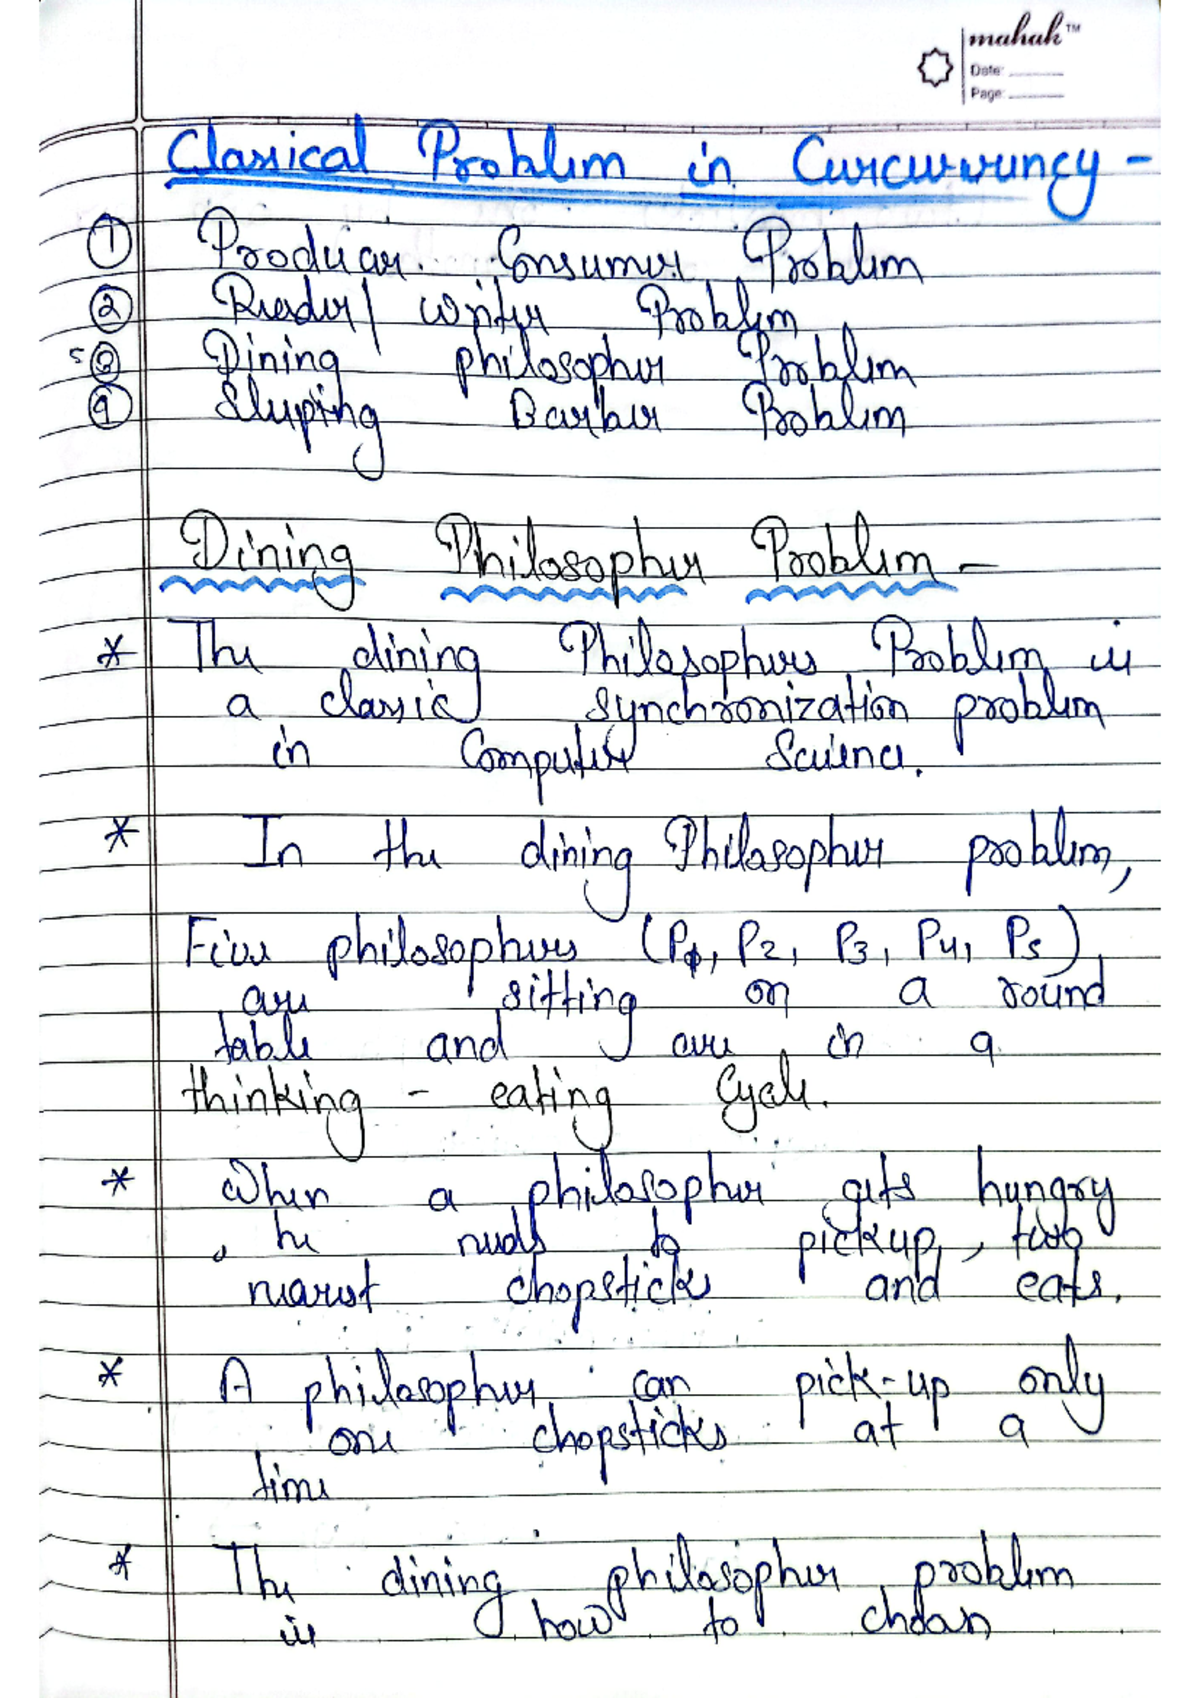 mahak™
Date:
Page:
Classical Problem in Curcurrency -
① Producer Consumer Problem
② Reader/ writer Problem
③ Dining philosopher Problem
④ Sleeping Barber Problem
Dining Philosopher Problem -
* The dining Philosophers Problem is
a classic synchronization problem
in Computer Science.
* In the dining Philosopher problem,
Five philosophers (P1, P2, P3, P4, P5)
are sitting on a round
table and are in a
thinking - eating Cycle.
* When a philosopher gets hungry
, he needs to pickup, two
nearest chopsticks and eats.
* A philosopher can pick-up only
one chopsticks at a
time
* The dining philosopher problem
is how to choose